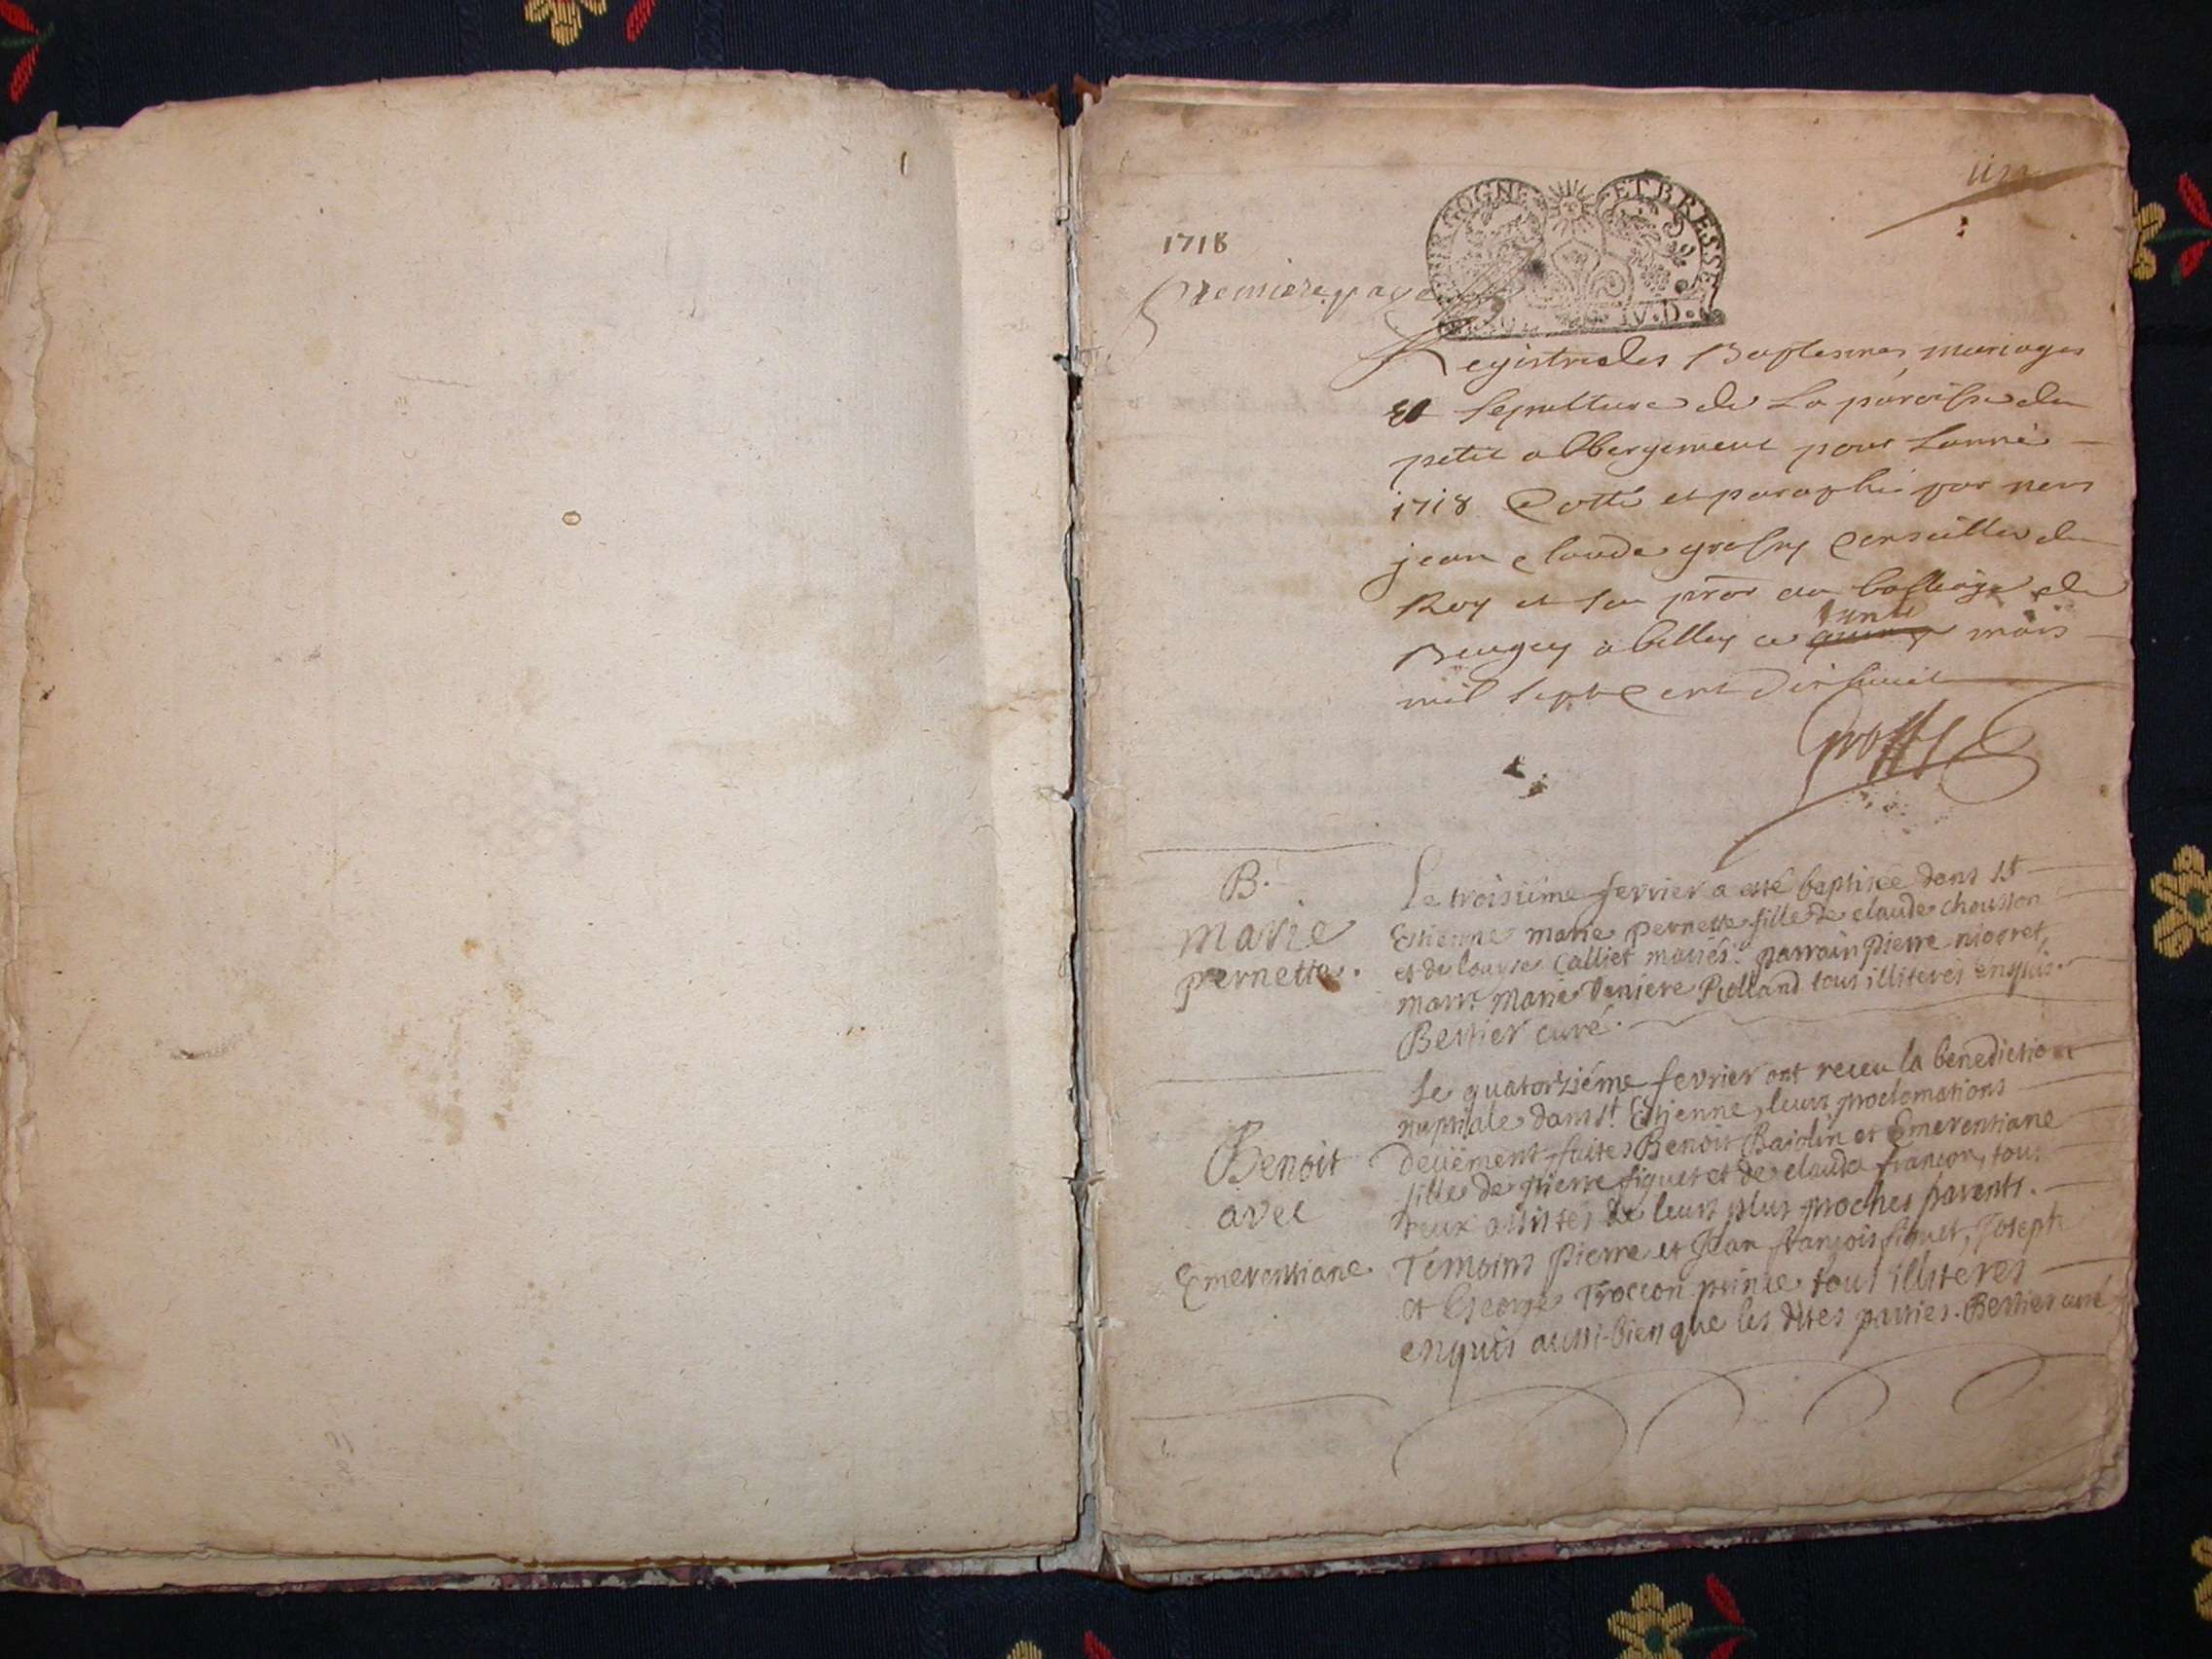 un
BOURGOGNE ET BRESSE
1718
premiere page
IV.D.
Registre des Baptesmes mariages
et sepulture de La paroisse du
petit abbergement pour Lanné
1718 Cotté et paraphé par nous
jean claude grossy Conseiller du
Roy et son pror au bailliage de
Beugey a belley ce trente mars
mil sept Cent dix huict
Grossy
B.
marie
pernette.
Le troisiéme fevrier a esté baptisée dans st
Estienne marie pernette fille de claude chouston
et de louise Calliet mariés. parrain pierre niogret,
marr. Marie Deniere Rolland tous illiterés enquis.
Bertier curé.
Benoit
avec
Emerentiane.
Le quatorziéme fevrier ont receu la benediction
nuptiale dans st. Estienne, leurs proclamations
deüement faites Benoit Baidin et Emerentiane
fille de pierre figuet et de clauda françon, tous
deux assistés de leurs plus proches parents.
Temoins pierre et Jean françois figuet, Joseph
et George Troccon prince tous illiterés
enquis aussi-bien que les dites parties. Bertier curé